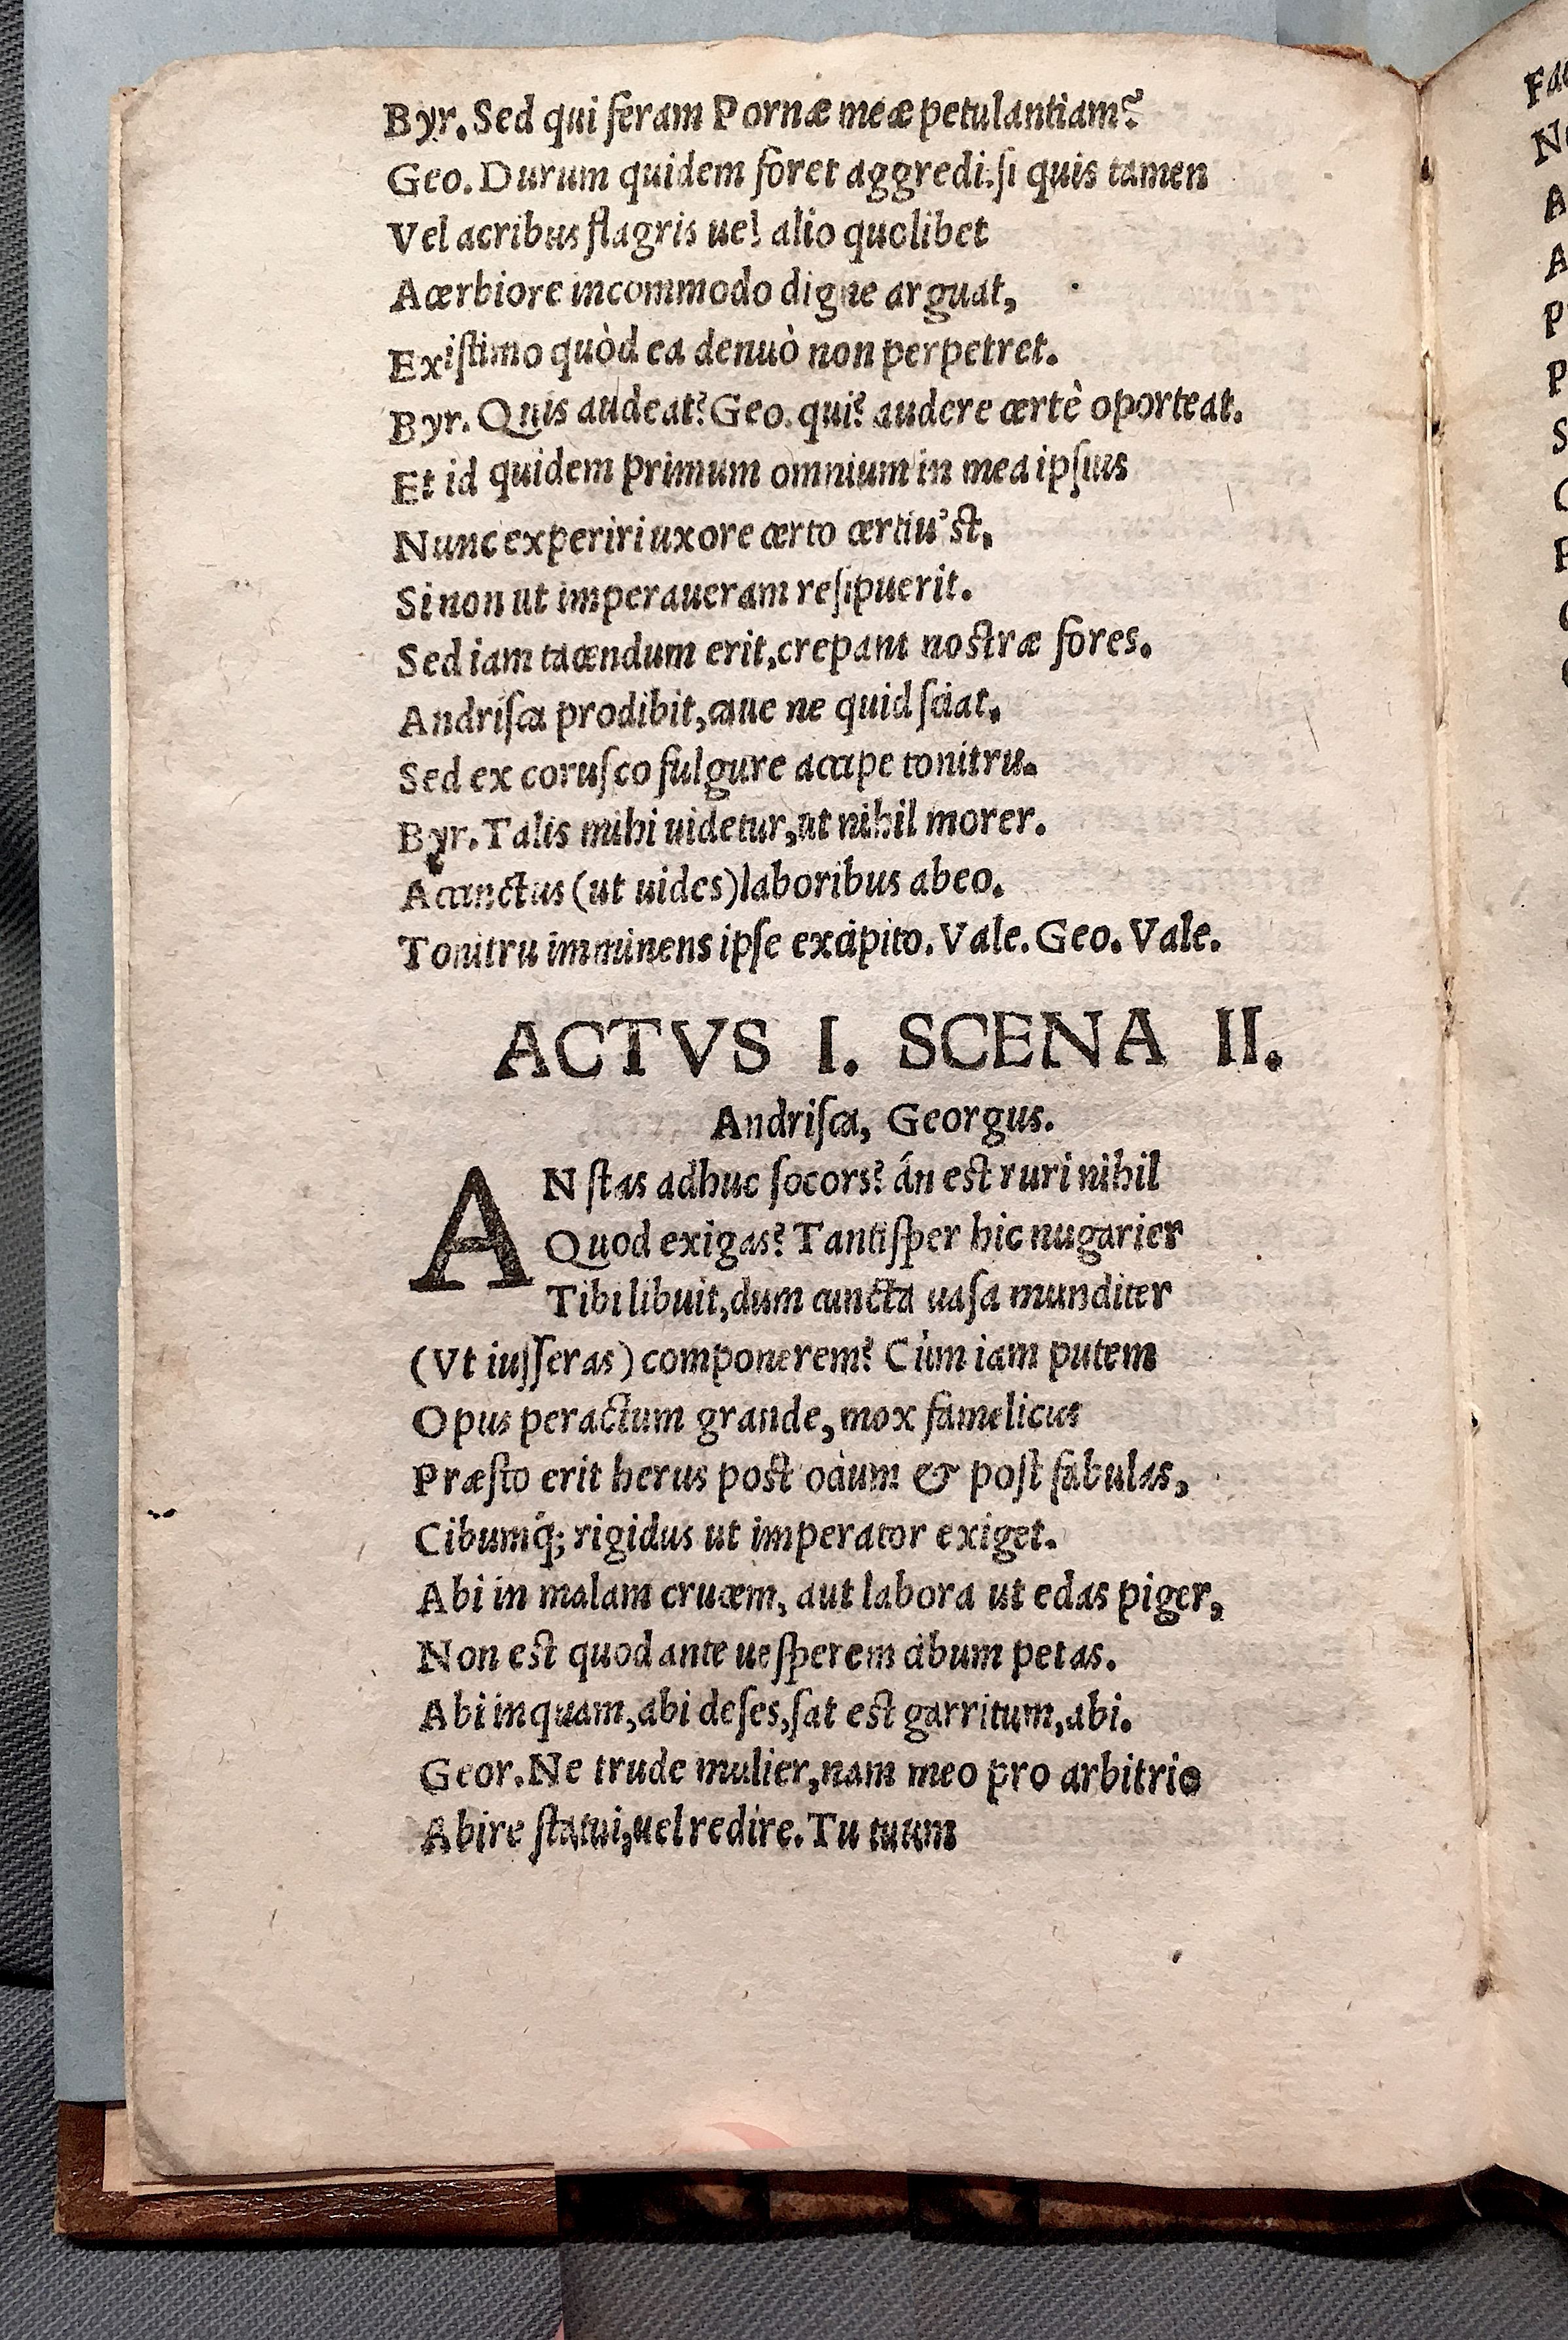 Byr. Sed qui feram Pornæ meæ petulantiam?
Geo. Durum quidem foret aggredi. si quis tamen
Vel acribus flagris uel alio quolibet
Acerbiore incommodo digne arguat,
Existimo quòd ea denuò non perpetret.
Byr. Quis audeat? Geo. qui? audere certè oporteat.
Et id quidem primum omnium in mea ipsius
Nunc experiri uxore certo certiu'st,
Si non ut imperaueram resipuerit.
Sed iam tacendum erit, crepant nostræ fores.
Andrisca prodibit, caue ne quid sciat,
Sed ex corusco fulgure accipe tonitru.
Byr. Talis mihi uidetur, ut nihil morer.
Accinctus (ut uides) laboribus abeo.
Tonitru imminens ipse excipito. Vale. Geo. Vale.
ACTVS I. SCENA II.
Andrisca, Georgus.
AN stas adhuc socors? án est ruri nihil
Quod exigas? Tantisper hic nugarier
Tibi libuit, dum cuncta uasa munditer
(Vt iusseras) componerem? Cùm iam putem
Opus peractum grande, mox famelicus
Præsto erit herus post ocium & post fabulas,
Cibumq́; rigidus ut imperator exiget.
Abi in malam crucem, aut labora ut edas piger,
Non est quod ante uesperem cibum petas.
Abi inquam, abi deses, sat est garritum, abi.
Geor. Ne trude mulier, nam meo pro arbitrio
Abire statui, uel redire. Tu tuum